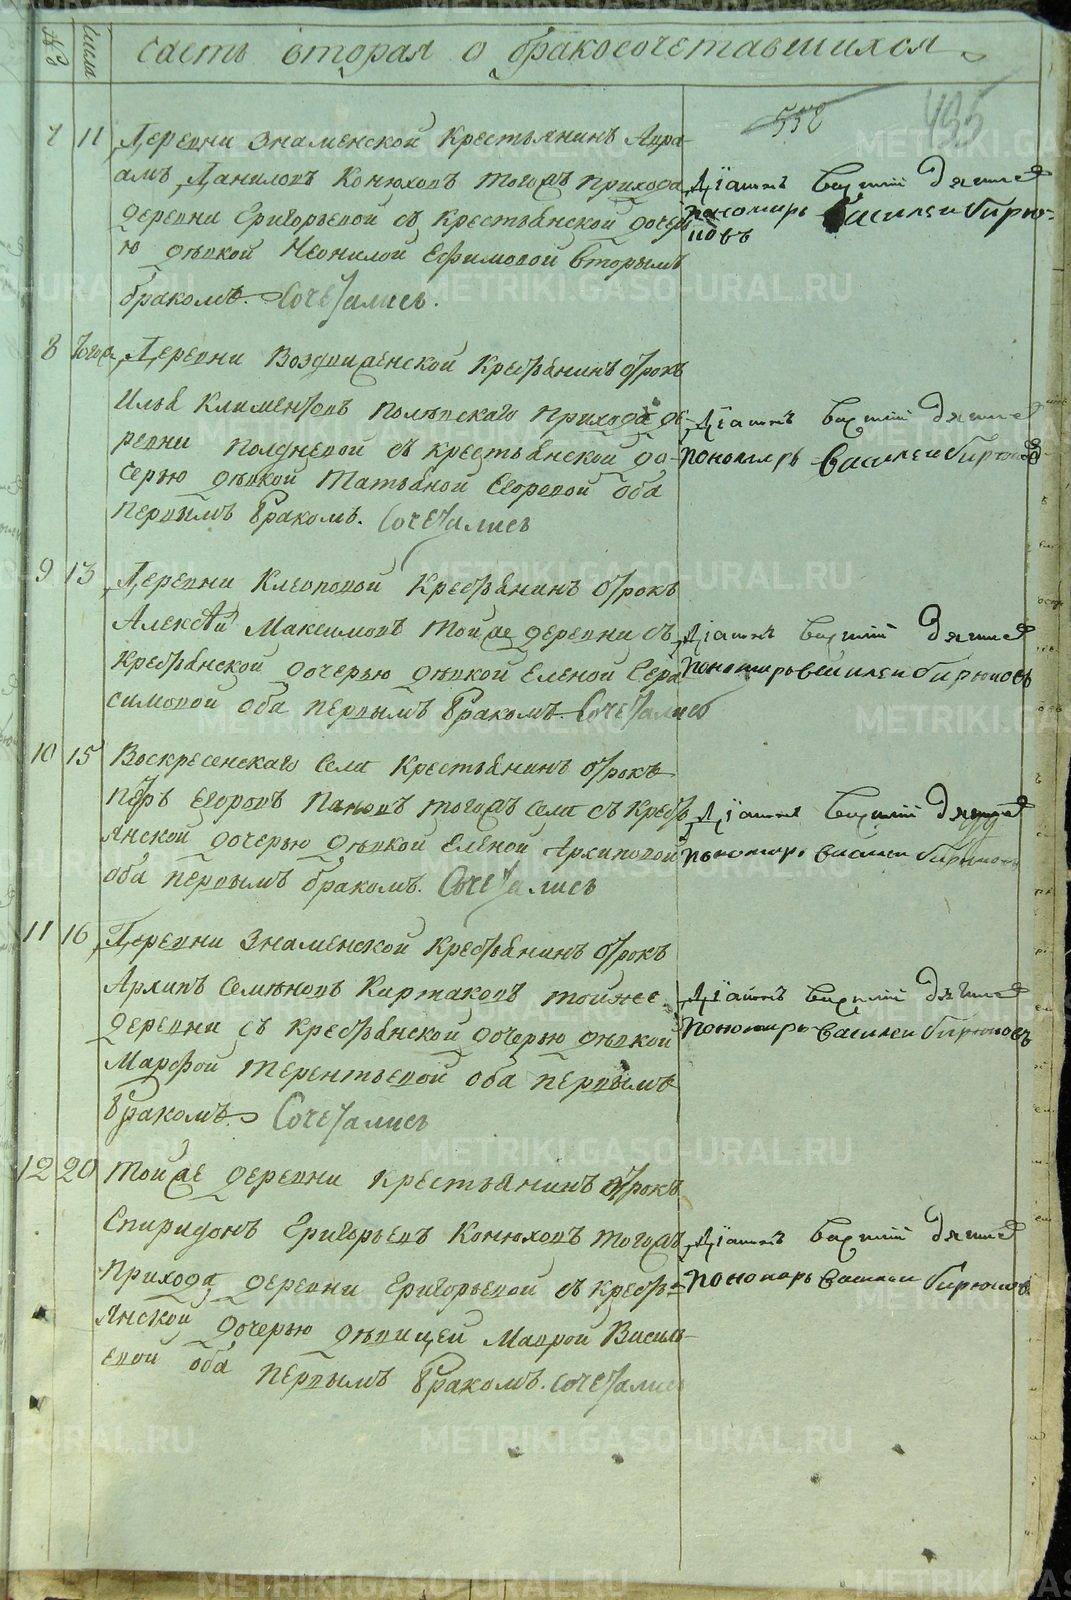 №
Числа
часть вторая о бракосочетавшихся
552
495
7 11 Деревни Знаменской Крестьянинъ Авра-
амъ Даниловъ Конюховъ тогожъ прихода
деревни Григорьевой съ крестьянской дочерь
ю девкой Неонилой Ефимовой вторымъ
бракомъ. Сочетались.
Дїаконъ
Пономарь Василеи Бирю-
ковъ
8 Деревни Воздвиженской Крестьянинъ отрокъ
Илья Климентовъ Полевскаго прихода де-
ревни Полдневой съ крестьянской до-
черью девкой Татьяной Егоровой оба
первымъ бракомъ. Сочетались
Дїаконъ
Пономарь Василеи Бирюковъ
9 13 Деревни Клеоповой Крестьянинъ отрокъ
Алексѣй Максимовъ тойже деревни съ
крестьянской дочерью девкой Еленой Гера
симовой оба первымъ бракомъ. Сочетались
Дїаконъ
Пономарь Василеи Бирюковъ
10 15 Воскресенскаго Села Крестьянинъ отрокъ
Петръ Егоровъ Пановъ тогожъ села съ крестъ
янской дочерью девкой Еленой Архиповой
оба первымъ бракомъ. Сочетались
Дїаконъ
Пономарь Василеи Бирюковъ
11 16 Деревни Знаменской Крестьянинъ отрокъ
Архипъ Семеновъ Картаковъ тойже
деревни съ крестьянской дочерью девкой
Марфой Терентьевой оба первымъ
бракомъ. Сочетались
Дїаконъ
Пономарь Василеи Бирюковъ
12 20 Тойже деревни Крестьянинъ отрокъ
Спиридонъ Григорьевъ Конюховъ тогожъ
прихода деревни Григорьевой съ кресть-
янской дочерью девицей Маврой Василь
евой оба первымъ бракомъ. Сочетались
Дїаконъ
Пономарь Василеи Бирюковъ
METRIKI.GASO-URAL.RU